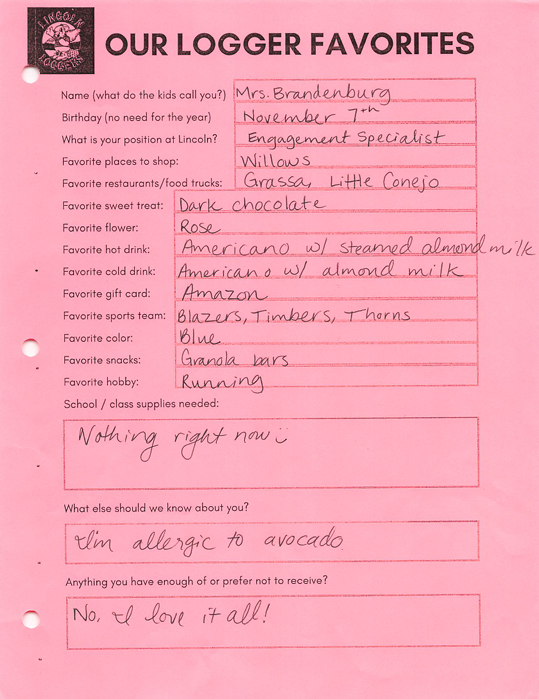 LINCOLN
LOGGERS
OUR LOGGER FAVORITES
Name (what do the kids call you?) Mrs. Brandenburg
Birthday (no need for the year) November 7th
What is your position at Lincoln? Engagement Specialist
Favorite places to shop: Willows
Favorite restaurants/food trucks: Grassa, Little Conejo
Favorite sweet treat: Dark chocolate
Favorite flower: Rose
Favorite hot drink: Americano w/ steamed almond milk
Favorite cold drink: Americano w/ almond milk
Favorite gift card: Amazon
Favorite sports team: Blazers, Timbers, Thorns
Favorite color: Blue
Favorite snacks: Granola bars
Favorite hobby: Running
School / class supplies needed:
Nothing right now :)
What else should we know about you?
I'm allergic to avocado.
Anything you have enough of or prefer not to receive?
No, I love it all!